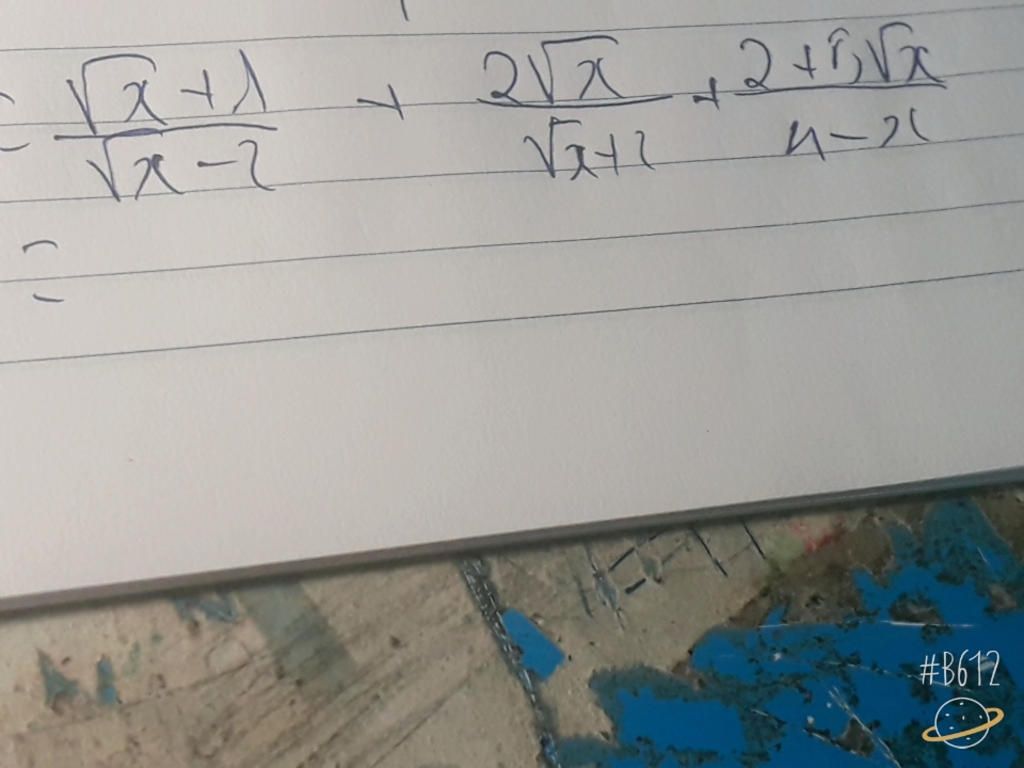 = \frac{\sqrt{x}+1}{\sqrt{x}-2} + \frac{2\sqrt{x}}{\sqrt{x}+2} + \frac{2+5\sqrt{x}}{4-x}
=
#B612